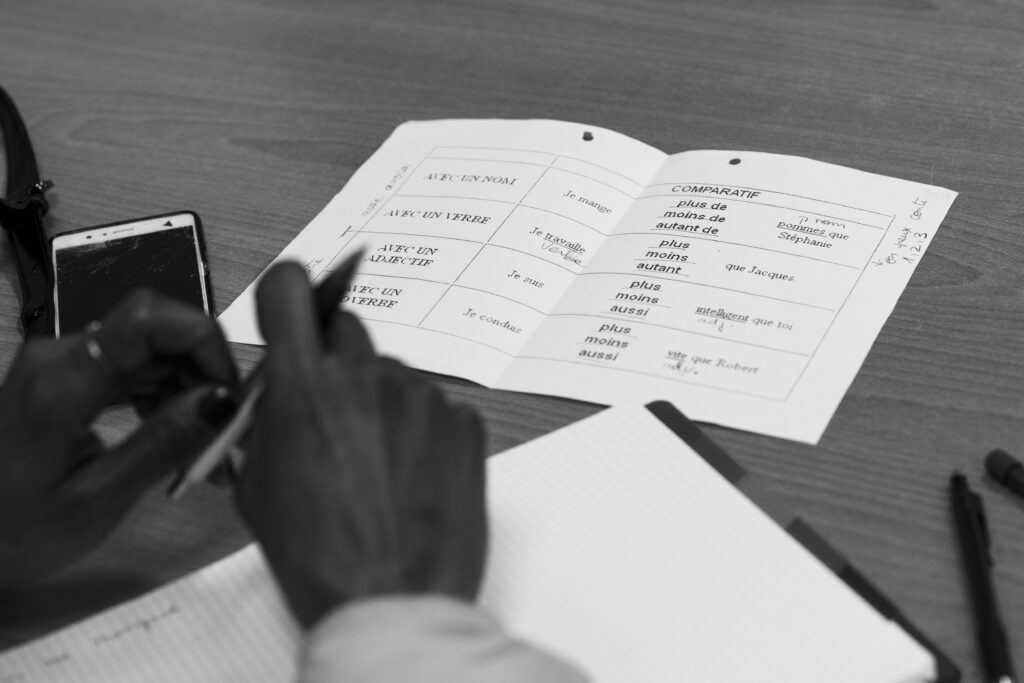 COMPARATIF
AVEC UN NOM
Je mange
plus de
moins de
autant de
p nom
pommes que
Stéphanie
AVEC UN VERBE
Je travaille
verbe
plus
moins
autant
que Jacques
AVEC UN
ADJECTIF
Je suis
plus
moins
aussi
intelligent que toi
adj.
AVEC UN
ADVERBE
Je conduis
plus
moins
aussi
vite que Robert
adv.
1, 2, 3